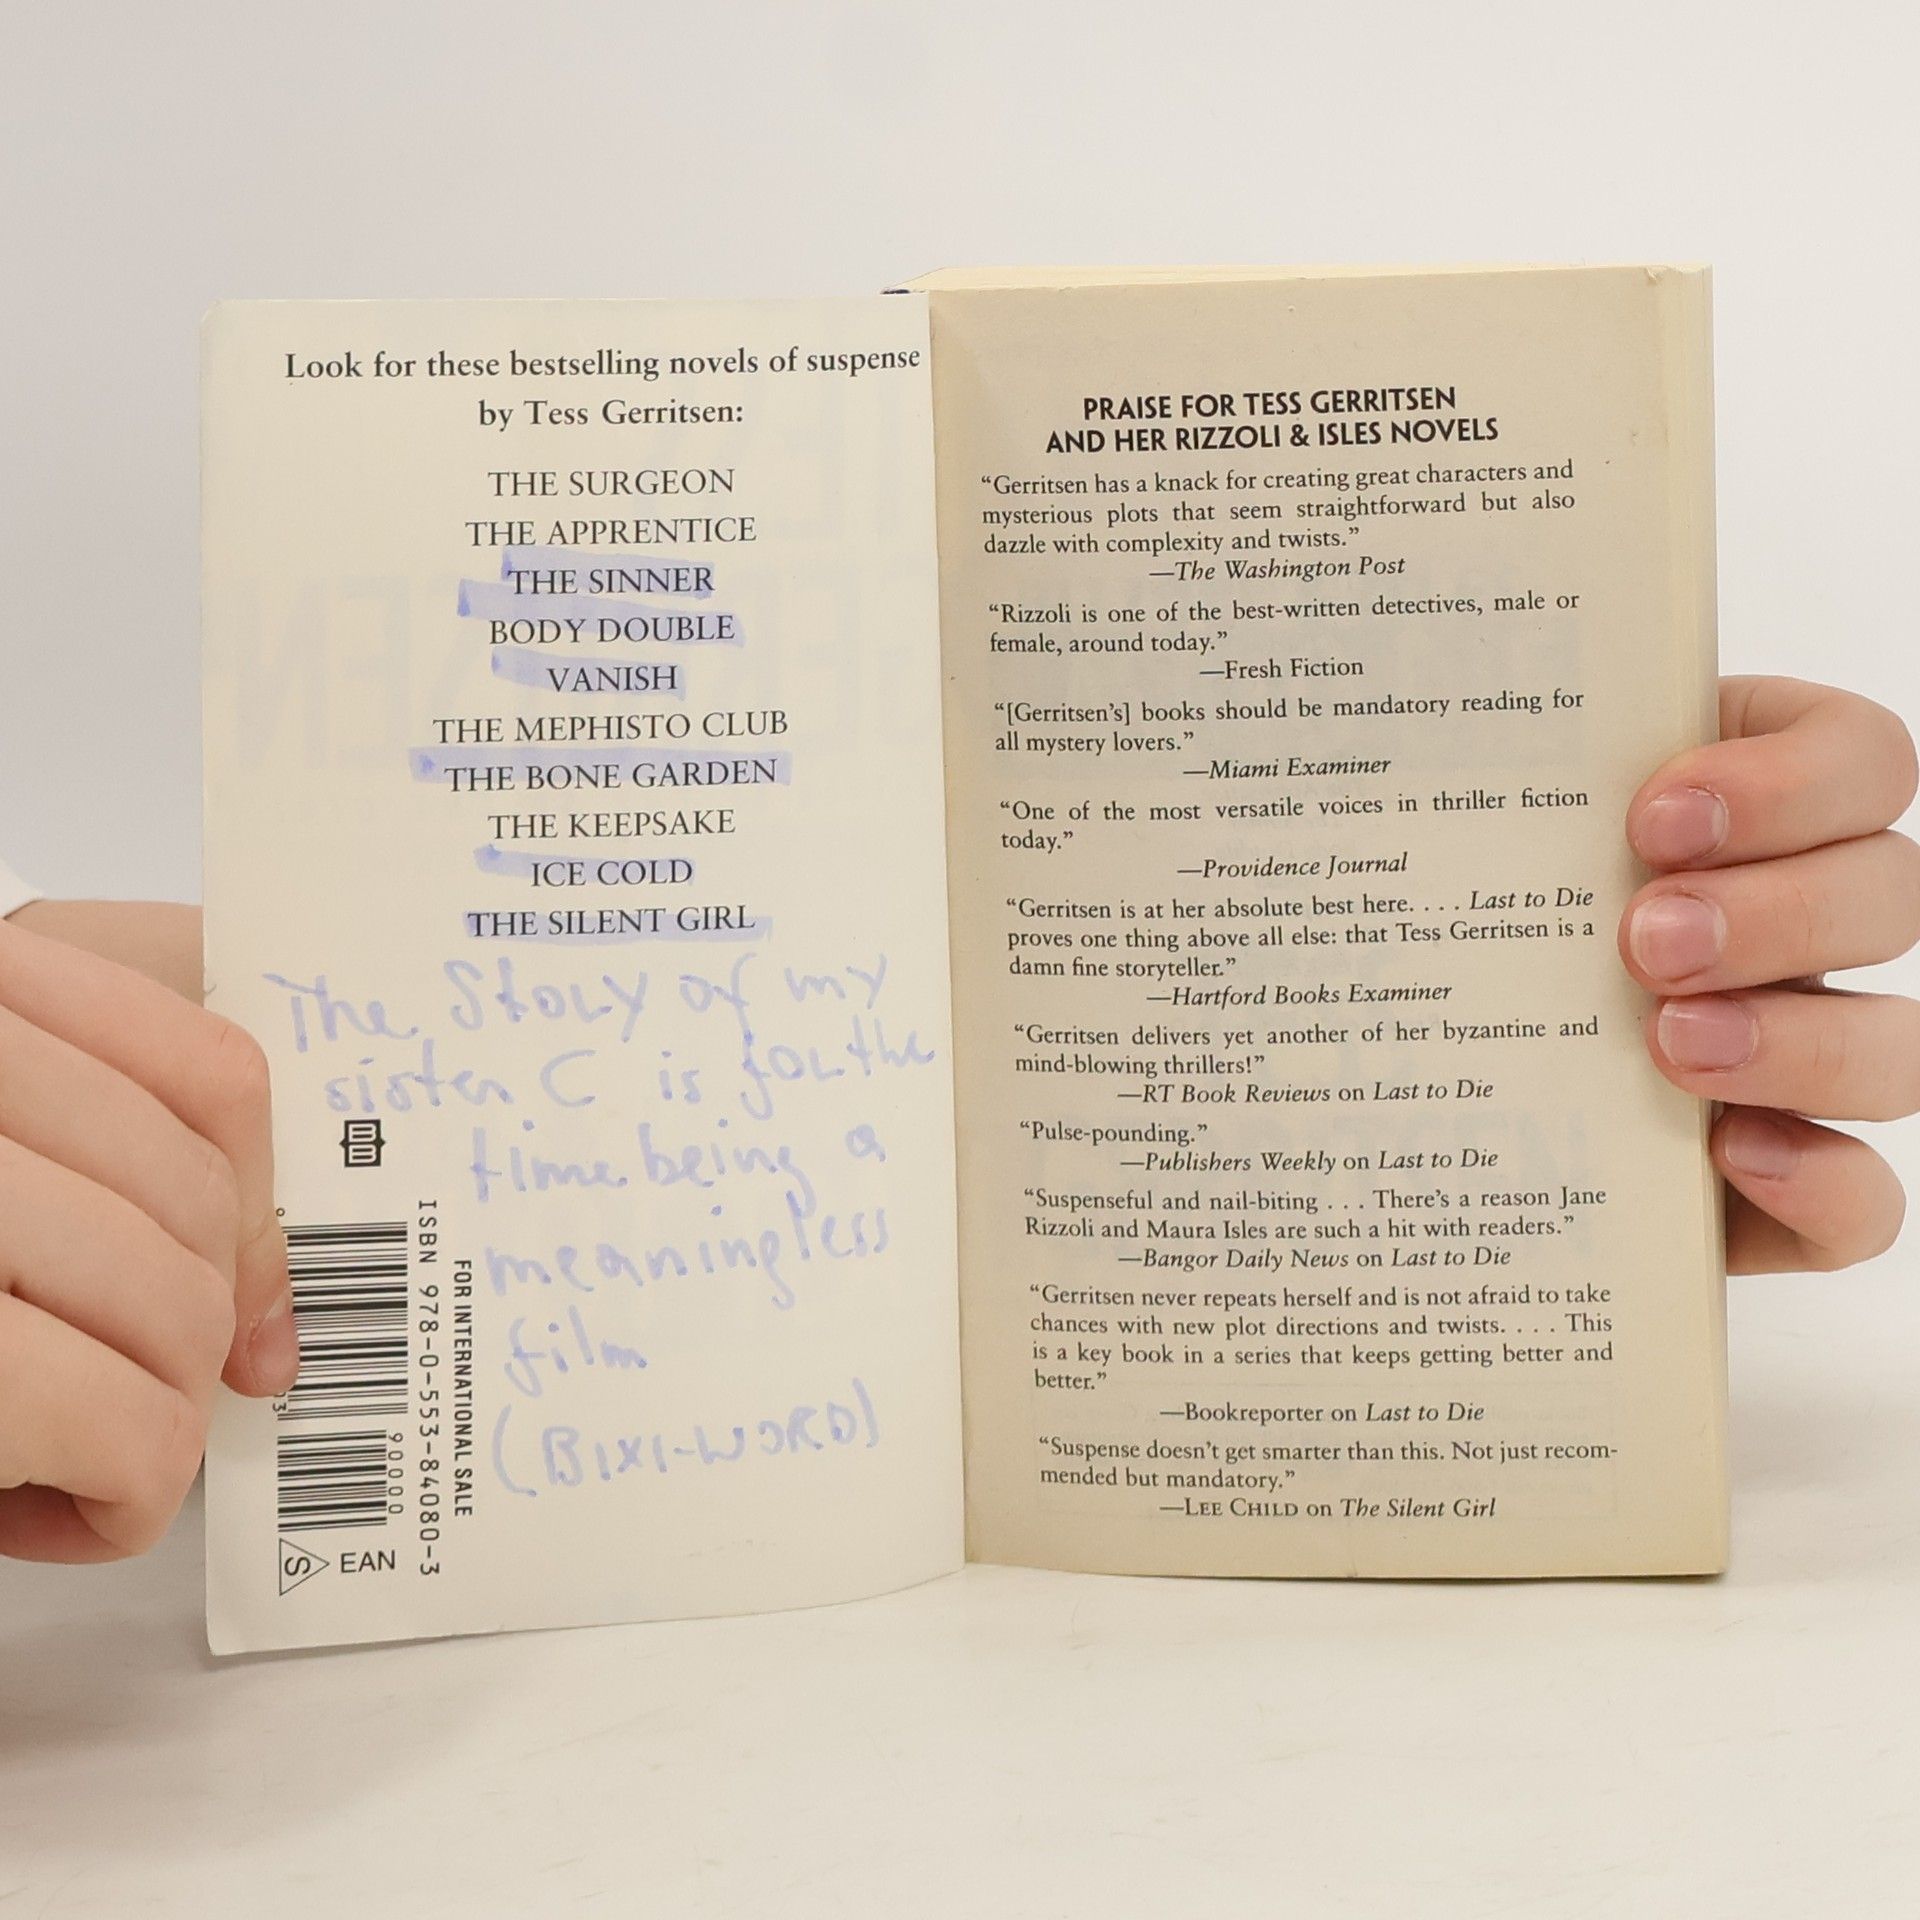 Look for these bestselling novels of suspense
by Tess Gerritsen:
THE SURGEON
THE APPRENTICE
THE SINNER
BODY DOUBLE
VANISH
THE MEPHISTO CLUB
THE BONE GARDEN
THE KEEPSAKE
ICE COLD
THE SILENT GIRL
The Story of my
sister C is for the
time being a
meaningless
film
(BIXI-WORD)
ISBN 978-0-553-84080-3
FOR INTERNATIONAL SALE
90000
S EAN
PRAISE FOR TESS GERRITSEN
AND HER RIZZOLI & ISLES NOVELS
“Gerritsen has a knack for creating great characters and
mysterious plots that seem straightforward but also
dazzle with complexity and twists.”
—The Washington Post
“Rizzoli is one of the best-written detectives, male or
female, around today.”
—Fresh Fiction
“[Gerritsen’s] books should be mandatory reading for
all mystery lovers.”
—Miami Examiner
“One of the most versatile voices in thriller fiction
today.”
—Providence Journal
“Gerritsen is at her absolute best here. . . . Last to Die
proves one thing above all else: that Tess Gerritsen is a
damn fine storyteller.”
—Hartford Books Examiner
“Gerritsen delivers yet another of her byzantine and
mind-blowing thrillers!”
—RT Book Reviews on Last to Die
“Pulse-pounding.”
—Publishers Weekly on Last to Die
“Suspenseful and nail-biting . . . There’s a reason Jane
Rizzoli and Maura Isles are such a hit with readers.”
—Bangor Daily News on Last to Die
“Gerritsen never repeats herself and is not afraid to take
chances with new plot directions and twists. . . . This
is a key book in a series that keeps getting better and
better.”
—Bookreporter on Last to Die
“Suspense doesn’t get smarter than this. Not just recom-
mended but mandatory.”
—LEE CHILD on The Silent Girl